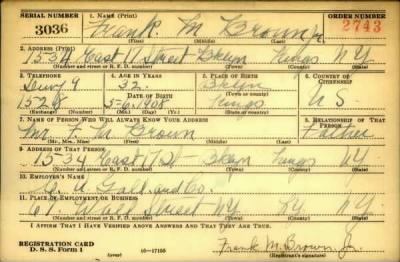 SERIAL NUMBER 1. NAME (Print) ORDER NUMBER
3036 Frank M Brown Jr. 2743
(First) (Middle) (Last)
2. ADDRESS (Print)
1534 East Street Bklyn Kings N.Y.
(Number and street or R. F. D. number) (Town) (County) (State)
3. TELEPHONE 4. AGE IN YEARS 5. PLACE OF BIRTH 6. COUNTRY OF CITIZENSHIP
Dewy 9 32 Bklyn
DATE OF BIRTH (Town or county)
1528 5-6-1908 Kings U.S.
(Exchange) (Number) (Mo.) (Day) (Yr.) (State or country)
7. NAME OF PERSON WHO WILL ALWAYS KNOW YOUR ADDRESS 8. RELATIONSHIP OF THAT PERSON
Mr. F. M. Brown Father
(Mr., Mrs., Miss) (First) (Middle) (Last)
9. ADDRESS OF THAT PERSON
1534 East St Bklyn Kings NY
(Number and street or R. F. D. number) (Town) (County) (State)
10. EMPLOYER'S NAME
and Co.
11. PLACE OF EMPLOYMENT OR BUSINESS
Wall Street NY NY NY
(Number and street or R. F. D. number) (Town) (County) (State)
I AFFIRM THAT I HAVE VERIFIED ABOVE ANSWERS AND THAT THEY ARE TRUE.
REGISTRATION CARD
D. S. S. Form 1 16—17105 Frank M. Brown, Jr.
(Registrant's signature)